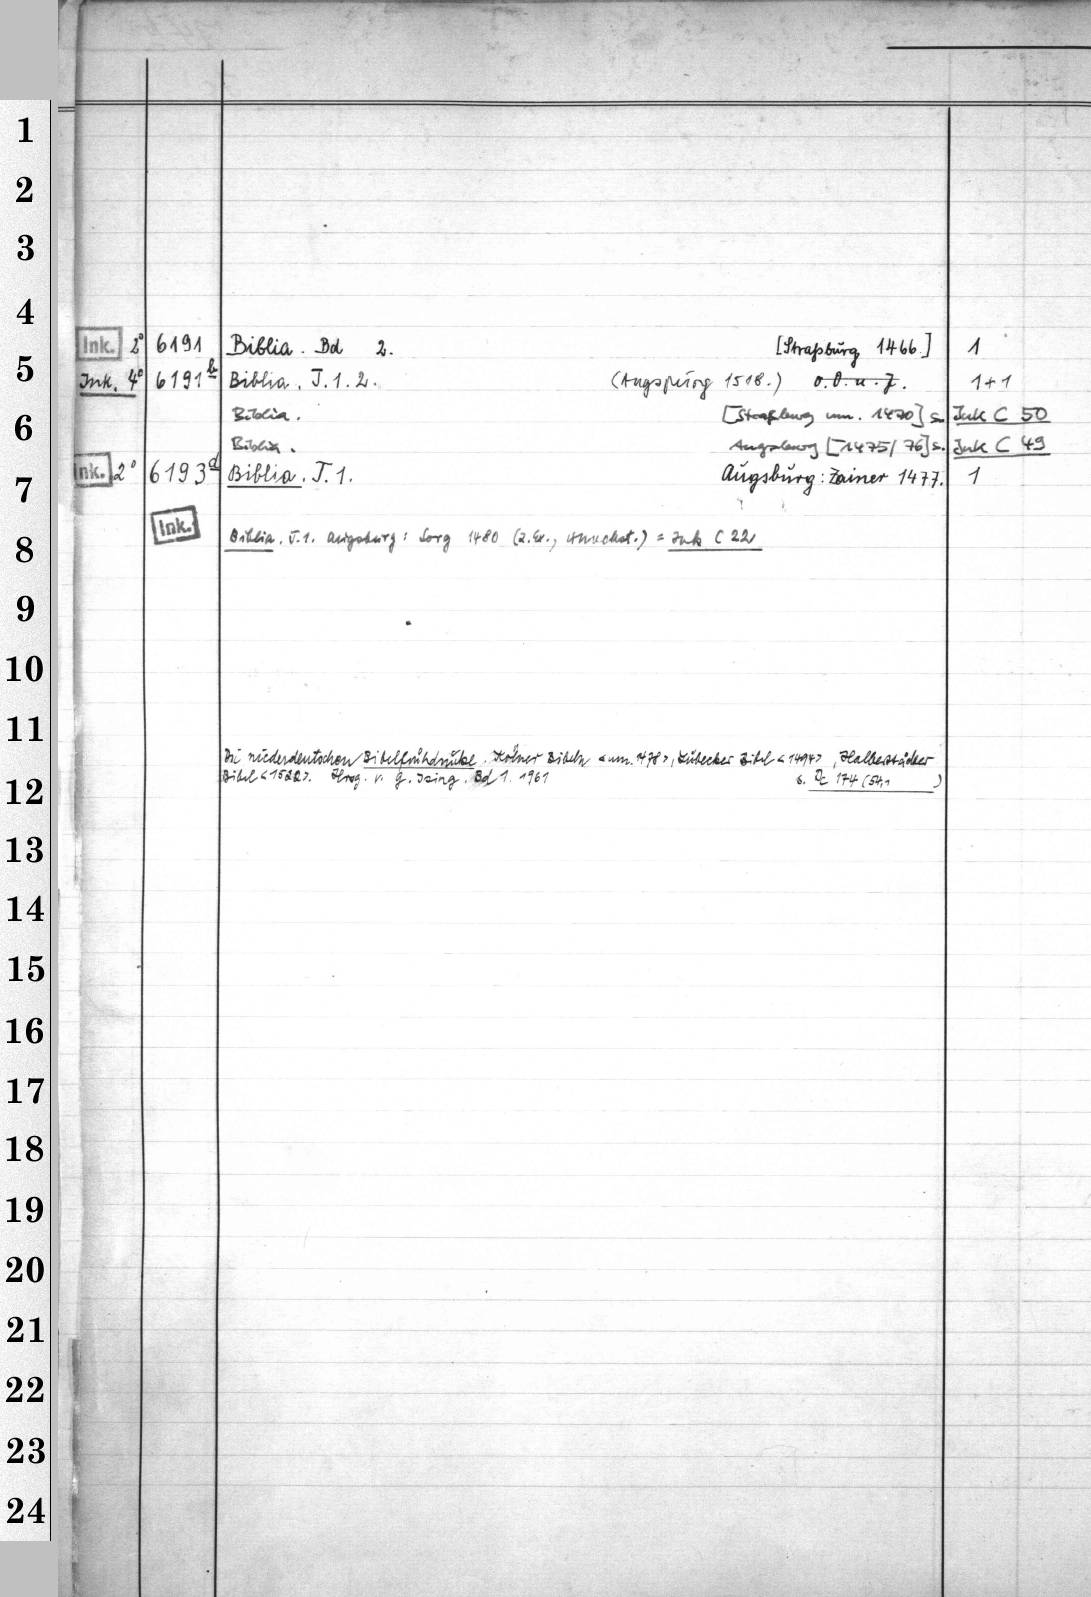 1
2
3
4
Ink. 2° 6191 Biblia. Bd 2. [Straßburg 1466.] 1
5
Ink. 4° 6191 b Biblia. T.1.2. (Augspurg 1518.) o.O.u.J. 1+1
6
Biblia. [Straßburg um. 1470] s. Ink C 50
Biblia. Augsburg [1475/76] s. Ink C 49
7
Ink. 2° 6193 d Biblia. T.1. Augsburg: Zainer 1477. 1
Ink.
8
Biblia. T.1. Augsburg: Sorg 1480 (2. Ex., unvollst.) = Ink C 22
9
10
11
Die niederdeutschen Bibelfrühdrucke. Kölner Bibeln <um. 1478>, Lübecker Bibel <1494>, Halberstädter
12
Bibel <1522>. Hrsg. v. G. Ising. Bd 1. 1961 s. 174 (54,1 )
13
14
15
16
17
18
19
20
21
22
23
24